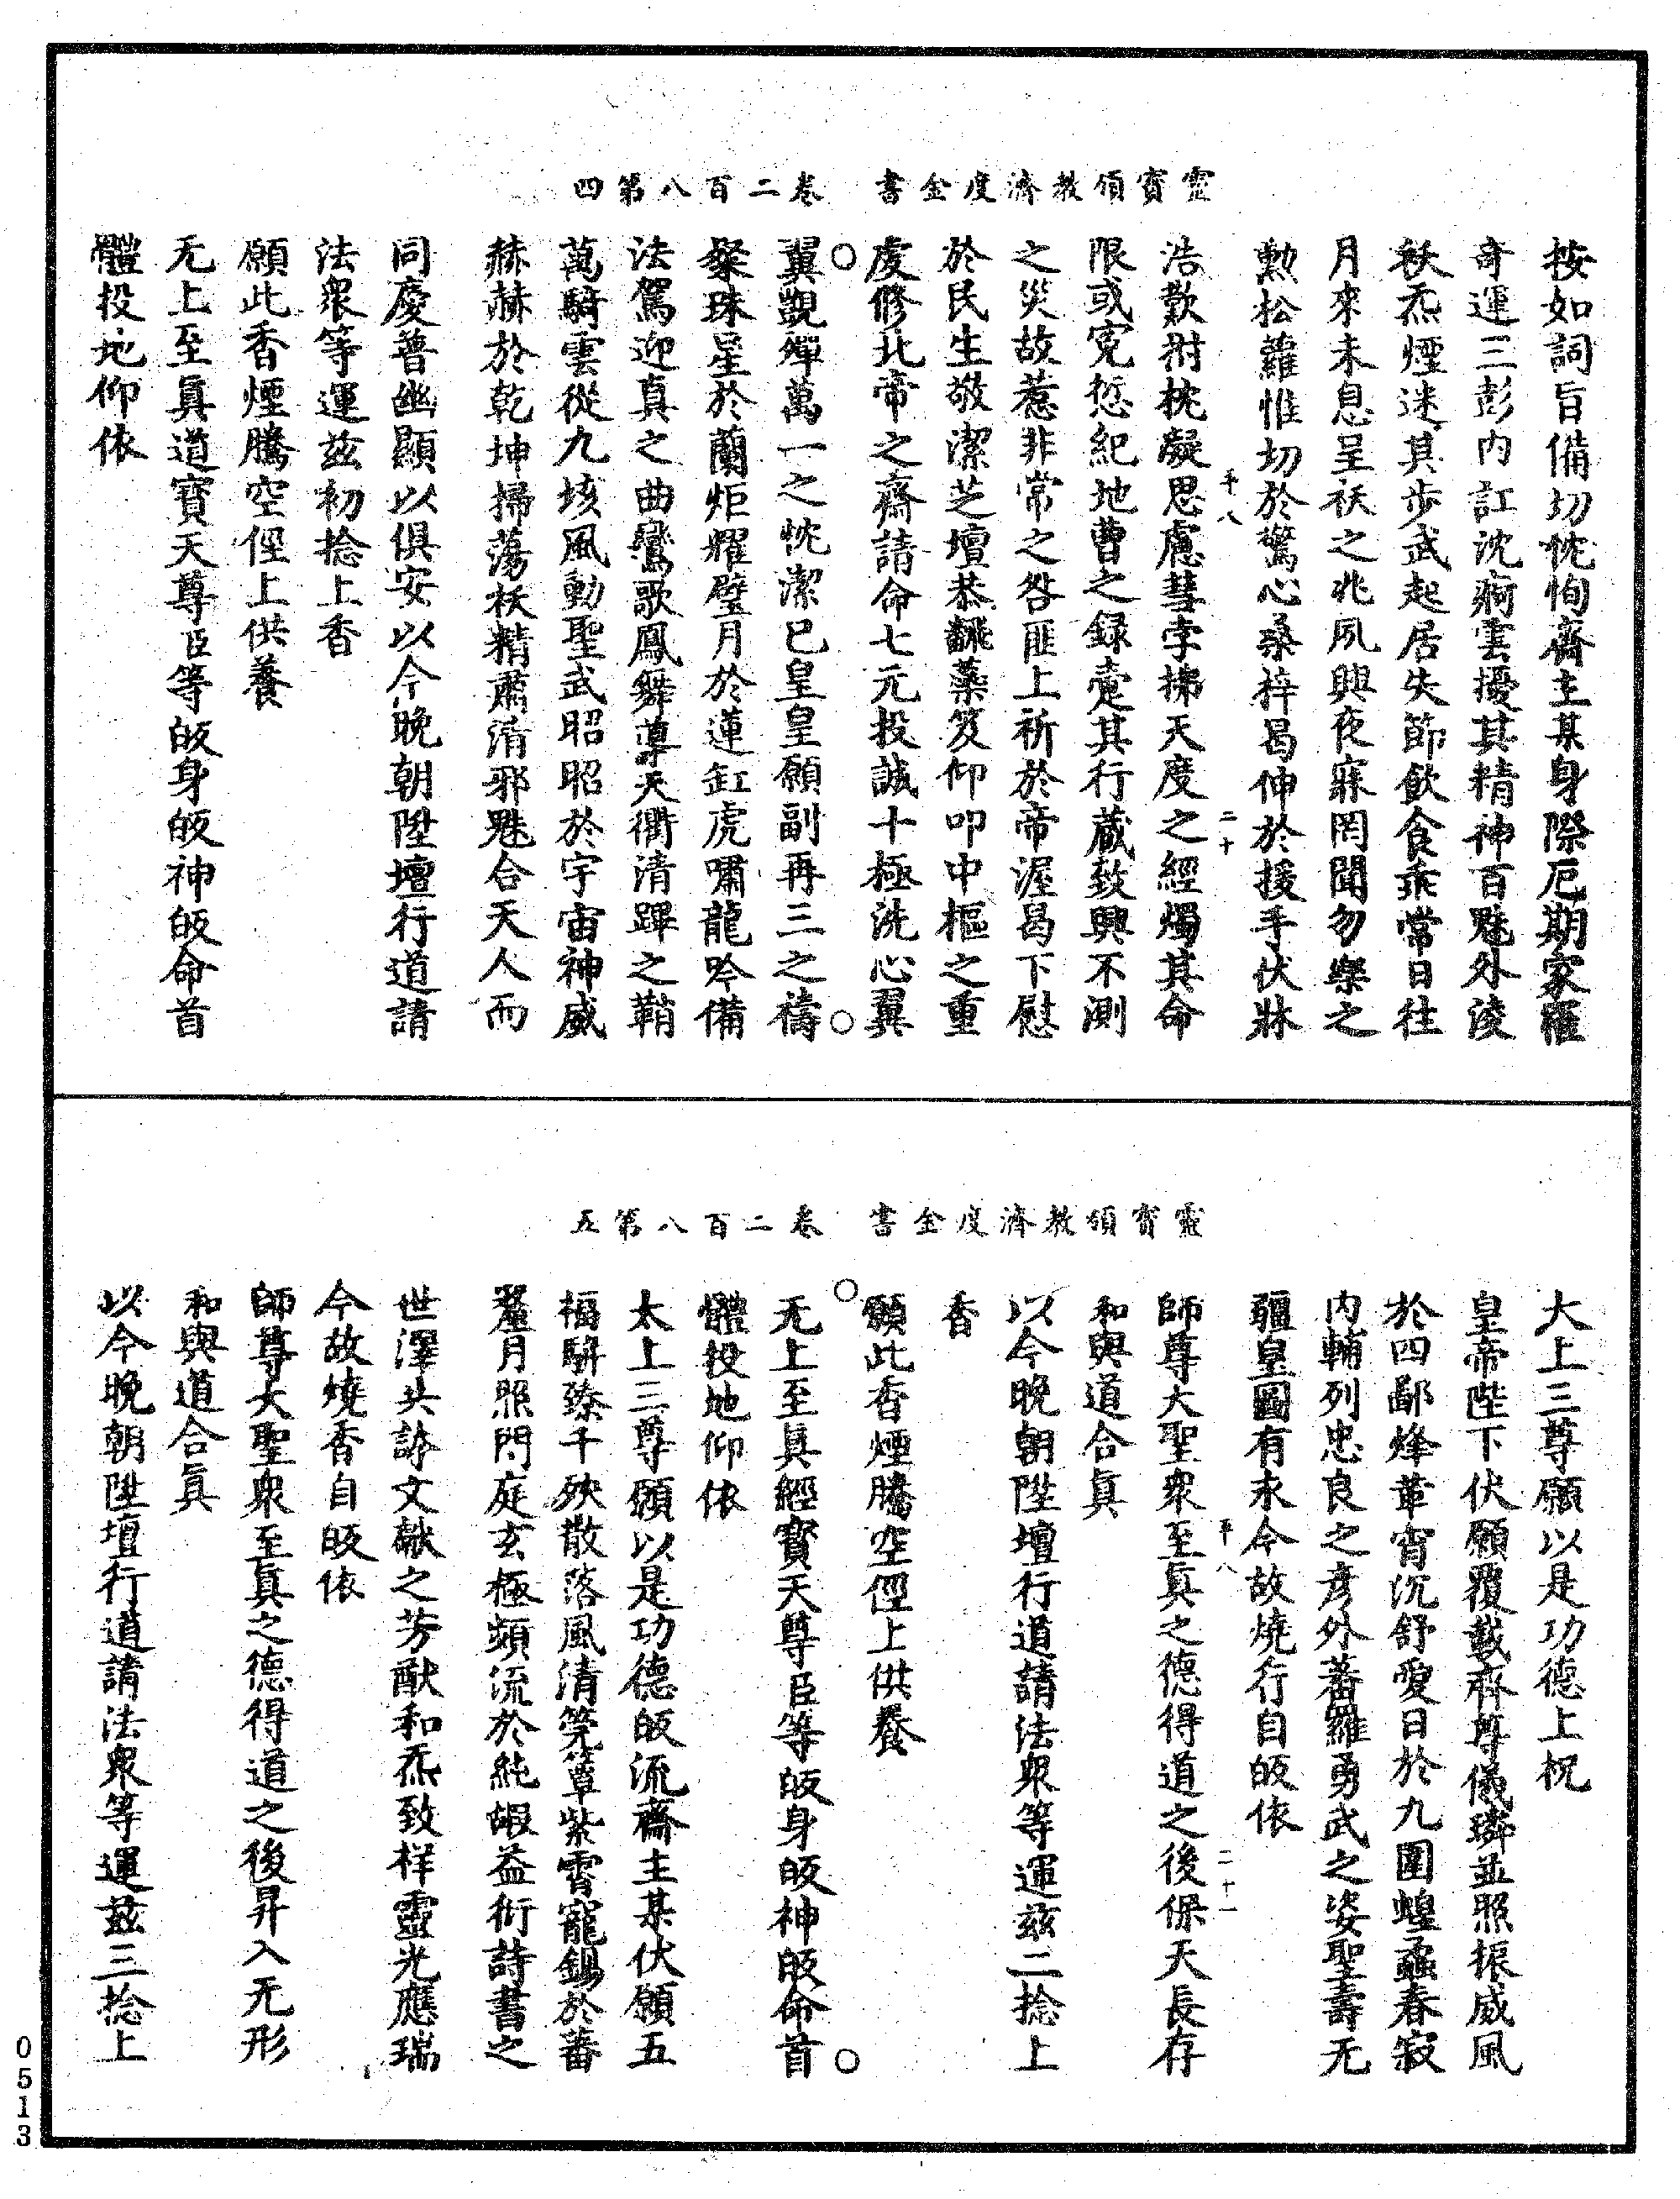 靈寶領教濟度金書　卷二百八第四
按如詞旨備切忱恂齋主某身際厄期家罹
奇運三彭內訌沈痾雲擾其精神百魅外淩
秡炁煙迷其步武起居失節飲食乖常日往
月來未息呈祆之兆夙興夜寐罔聞勿藥之
勲松蘿惟切於驚心桑梓曷伸於援手伏牀
浩歎拊枕凝思慮彗孛拂天度之經燭其命
限或寃愆紀地曹之録壹其行藏致興不測
之災故惹非常之咎匪上祈於帝渥曷下慰
於民生敬潔芝壇恭飜蘂笈仰叩中樞之重
虔修北帝之齋請命七元投誠十極洗心翼
翼覬殫萬一之忱潔已皇皇願副再三之禱
粲珠星於蘭炬耀璧月於蓮缸虎嘯龍吟備
法駕迎真之曲鸞歌鳳舞導天衢清蹕之鞘
萬騎雲從九垓風動聖武昭昭於宇宙神威
赫赫於乾坤掃蕩祅精肅清邪魅合天人而
同慶普幽顯以俱安以今晚朝陞壇行道請
法衆等運兹初捻上香
願此香煙騰空俓上供養
无上至眞道寶天尊臣等皈身皈神皈命首
體投地仰依
千八
二十
靈寶領教濟度金書　卷二百八第五
大上三尊願以是功德上祝
皇帝陛下伏願覆載齊尊儀璘並照振威風
於四鄙烽葦宵沉舒愛日於九圍蝗蝨春寂
內輔列忠良之彥外蕃羅勇武之姿聖壽无
疆皇圖有永今故燒行自皈依
師尊大聖衆至眞之德得道之後保天長存
和與道合眞
以今晚朝陞壇行道請法衆等運兹二捻上
香
願此香煙騰空俓上供養
无上至眞經寶天尊臣等皈身皈神皈命首
體投地仰依
太上三尊願以是功德皈流齋主某伏願五
福駢臻千殃散落風清筦簟紫霄寵錫於蕃
釐月照門庭玄極頻流於純嘏益衍詩書之
世澤共誇文獻之芳猷和炁致样靈光應瑞
今故燒香自皈依
師尊大聖衆至眞之德得道之後昇入无形
和與道合眞
以今晚朝陞壇行道請法衆等運兹三捻上
千八
二十一
0513